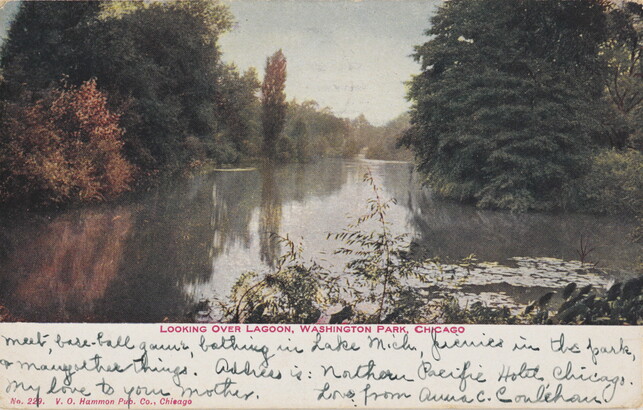 LOOKING OVER LAGOON, WASHINGTON PARK, CHICAGO
meet, base-ball game, bathing in Lake Mich, picnics in the park
& many other things. Address is: Northern Pacific Hotel Chicago.
My love to your mother. Love from Anna C.
No. 229. V. O. Hammon Pub. Co., Chicago